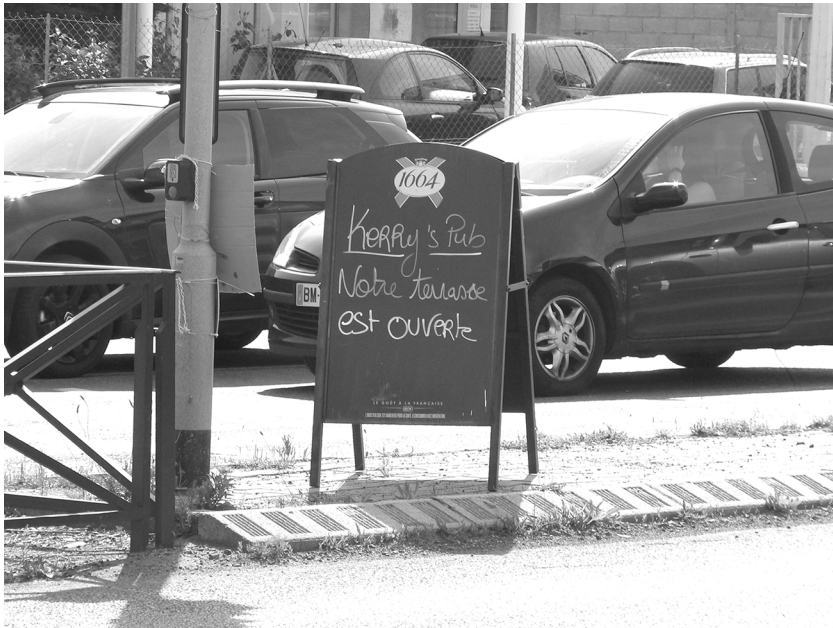 1664
Kerry's Pub
Notre terrasse
est ouverte
LE GOÛT À LA FRANÇAISE
BM-